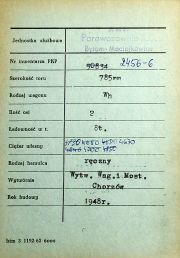 Jednostka służbowa
Parowozownia
Bytom-Maciejkowice
Nr inwentarza PKP 2456-6
Szerokość toru 785mm
Rodzaj wagonu Wh
Ilość osi 2
Ładowność w t. 5t.
Ciężar własny
Rodzaj hamulca ręczny
Wytwórnia Wytw. Wag. i Most.
Chorzów
Rok budowy 1948r.